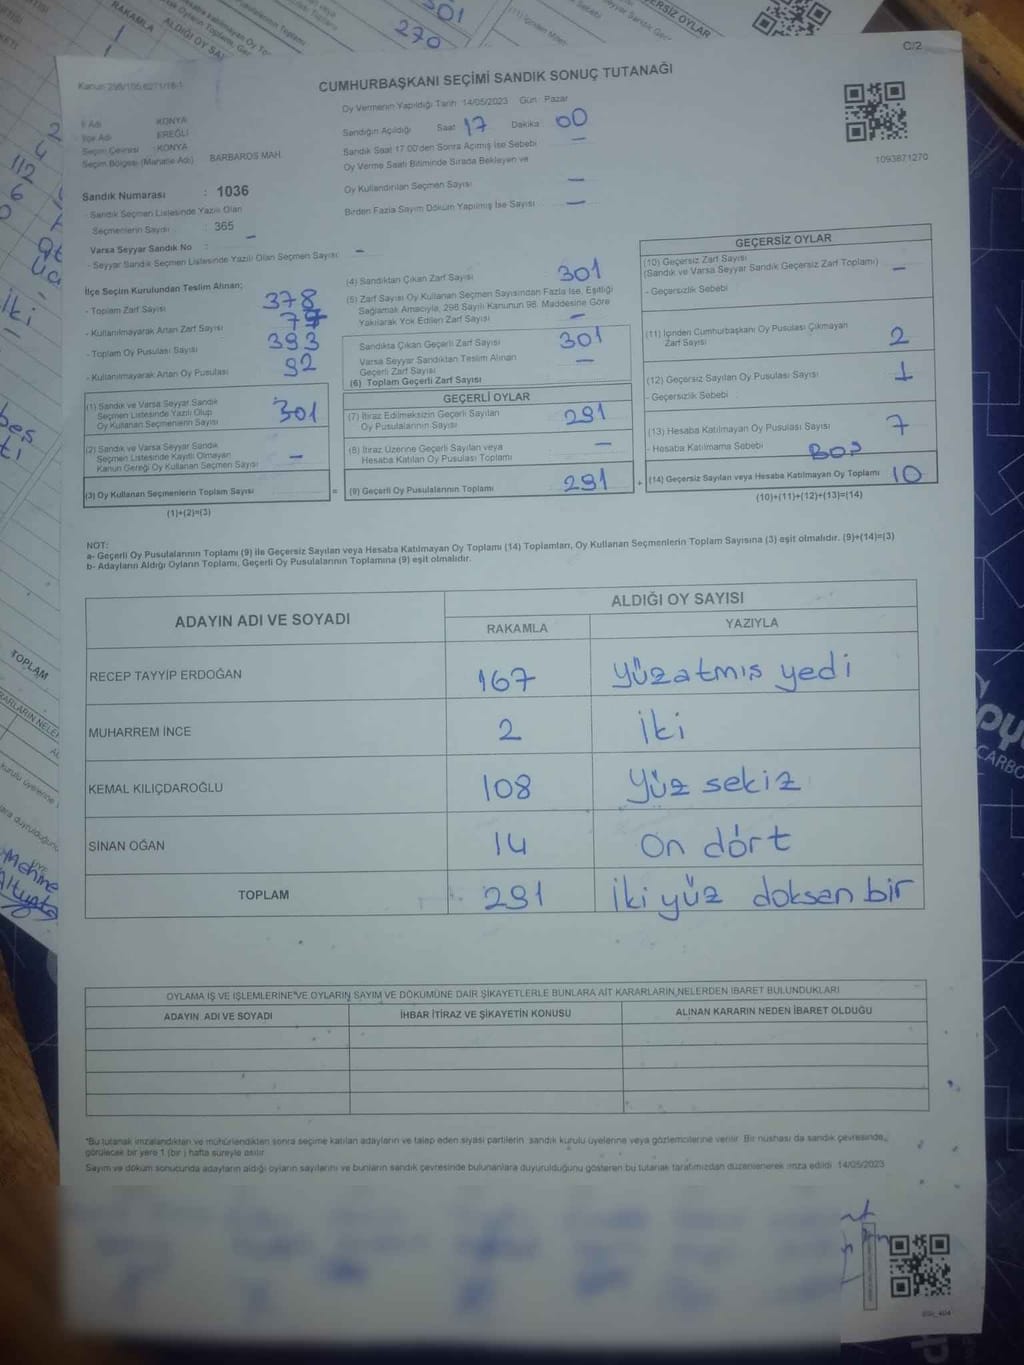 C/2
CUMHURBAŞKANI SEÇİMİ SANDIK SONUÇ TUTANAĞI
Oy Vermenin Yapıldığı Tarih 14/05/2023 Gün Pazar
İl Adı KONYA
EREĞLİ
Seçim Çevresi : KONYA
Seçim Bölgesi (Mahalle Adı) BARBAROS MAH.
Sandık Numarası : 1036
- Sandık Seçmen Listesinde Yazılı Olan
Seçmenlerin Sayısı : 365
Varsa Seyyar Sandık No : -
- Seyyar Sandık Seçmen Listesinde Yazılı Olan Seçmen Sayısı: -
Sandığın Açıldığı Saat 17 Dakika 00
Sandık Saat 17:00'den Sonra Açılmış İse Sebebi -
Oy Verme Saati Bitiminde Sırada Bekleyen ve
Oy Kullandırılan Seçmen Sayısı -
Birden Fazla Sayım Döküm Yapılmış İse Sayısı -
1093871270
İlçe Seçim Kurulundan Teslim Alınan;
- Toplam Zarf Sayısı 378
- Kullanılmayarak Artan Zarf Sayısı
- Toplam Oy Pusulası Sayısı 393
- Kullanılmayarak Artan Oy Pusulası 92
(1) Sandık ve Varsa Seyyar Sandık
Seçmen Listesinde Yazılı Olup
Oy Kullanan Seçmenlerin Sayısı 301
(2) Sandık ve Varsa Seyyar Sandık
Seçmen Listesinde Kayıtlı Olmayan
Kanun Gereği Oy Kullanan Seçmen Sayısı -
(3) Oy Kullanan Seçmenlerin Toplam Sayısı =
(1)+(2)=(3)
(4) Sandıktan Çıkan Zarf Sayısı 301
(5) Zarf Sayısı Oy Kullanan Seçmen Sayısından Fazla İse, Eşitliği
Sağlamak Amacıyla, 298 Sayılı Kanunun 98. Maddesine Göre
Yakılarak Yok Edilen Zarf Sayısı -
Sandıkta Çıkan Geçerli Zarf Sayısı 301
Varsa Seyyar Sandıktan Teslim Alınan
Geçerli Zarf Sayısı -
(6) Toplam Geçerli Zarf Sayısı
GEÇERLİ OYLAR
(7) İtiraz Edilmeksizin Geçerli Sayılan
Oy Pusulalarının Sayısı 291
(8) İtiraz Üzerine Geçerli Sayılan veya
Hesaba Katılan Oy Pusulası Toplamı -
(9) Geçerli Oy Pusulalarının Toplamı 291 +
GEÇERSİZ OYLAR
(10) Geçersiz Zarf Sayısı
(Sandık ve Varsa Seyyar Sandık Geçersiz Zarf Toplamı) -
- Geçersizlik Sebebi
(11) İçinden Cumhurbaşkanı Oy Pusulası Çıkmayan
Zarf Sayısı 2
(12) Geçersiz Sayılan Oy Pusulası Sayısı 1
- Geçersizlik Sebebi
(13) Hesaba Katılmayan Oy Pusulası Sayısı 7
- Hesaba Katılmama Sebebi BOŞ
(14) Geçersiz Sayılan veya Hesaba Katılmayan Oy Toplamı 10
(10)+(11)+(12)+(13)=(14)
NOT:
a- Geçerli Oy Pusulalarının Toplamı (9) ile Geçersiz Sayılan veya Hesaba Katılmayan Oy Toplamı (14) Toplamları, Oy Kullanan Seçmenlerin Toplam Sayısına (3) eşit olmalıdır. (9)+(14)=(3)
b- Adayların Aldığı Oyların Toplamı, Geçerli Oy Pusulalarının Toplamına (9) eşit olmalıdır.
ADAYIN ADI VE SOYADI ALDIĞI OY SAYISI
RAKAMLA YAZIYLA
RECEP TAYYİP ERDOĞAN 167 Yüzatmıs yedi
MUHARREM İNCE 2 İki
KEMAL KILIÇDAROĞLU 108 Yüz sekiz
SİNAN OĞAN 14 On dört
TOPLAM 291 İki yüz doksan bir
OYLAMA İŞ VE İŞLEMLERİNE VE OYLARIN SAYIM VE DÖKÜMÜNE DAİR ŞİKAYETLERLE BUNLARA AİT KARARLARIN NELERDEN İBARET BULUNDUKLARI
ADAYIN ADI VE SOYADI İHBAR İTİRAZ VE ŞİKAYETİN KONUSU ALINAN KARARIN NEDEN İBARET OLDUĞU
*Bu tutanak imzalandıktan ve mühürlendikten sonra seçime katılan adayların ve talep eden siyasi partilerin sandık kurulu üyelerine veya gözlemcilerine verilir. Bir nüshası da sandık çevresinde,
görülecek bir yere 1 (bir ) hafta süreyle asılır.
Sayım ve döküm sonucunda adayların aldığı oyların sayılarını ve bunların sandık çevresinde bulunanlara duyurulduğunu gösteren bu tutanak tarafımızdan düzenlenerek imza edildi. 14/05/2023